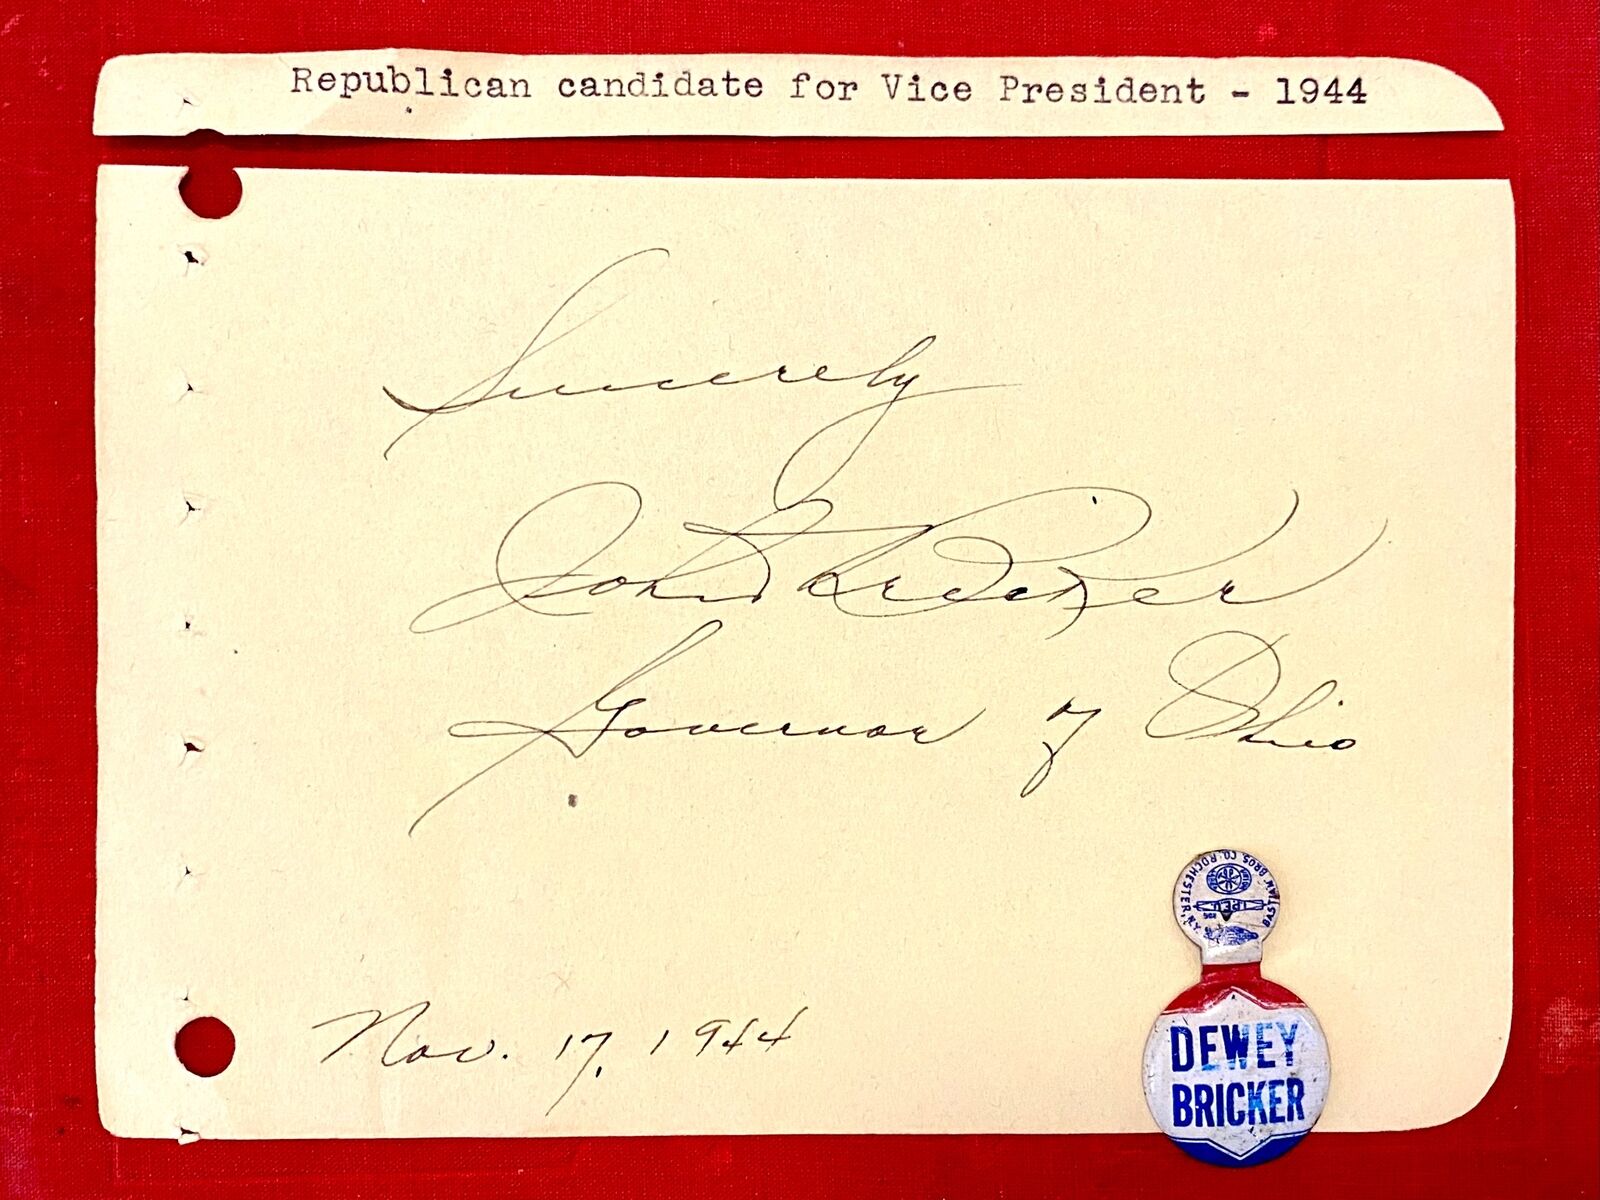 Republican candidate for Vice President - 1944
Sincerely
John W. Bricker
Governor of Ohio
Nov. 17, 1944
BASTIAN BROS. CO. ROCHESTER, N.Y.
DEWEY
BRICKER